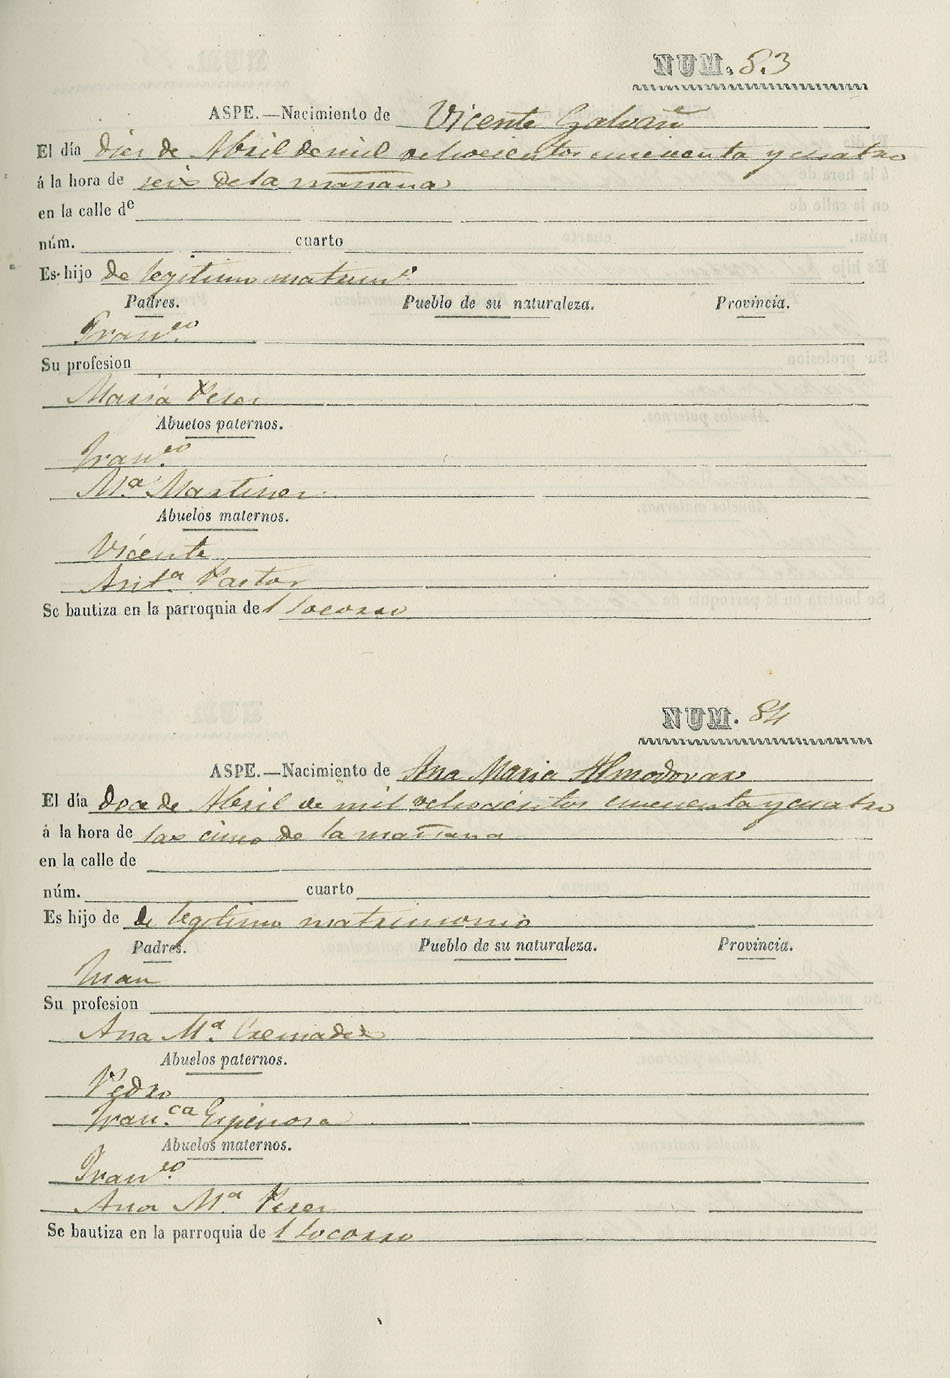 NUM. 83
ASPE.—Nacimiento de Vicente Galvañ
El día diez de Abril de mil ochocientos cincuenta y cuatro
á la hora de seis de la mañana
en la calle de
núm. cuarto
Es hijo de legitimo matrimo
Padres. Pueblo de su naturaleza. Provincia.
Franco
Su profesion
María Perez
Abuelos paternos.
Franco
Ma Martinez
Abuelos maternos.
Vicente
Anta Pastor
Se bautiza en la parroquia del Socorro
NUM. 84
ASPE.—Nacimiento de Ana Maria Almodovar
El día doce de Abril de mil ochocientos cincuenta y cuatro
á la hora de las cinco de la mañana
en la calle de
núm. cuarto
Es hijo de de legitimo matrimonio
Padres. Pueblo de su naturaleza. Provincia.
Juan
Su profesion
Ana Ma Cremades
Abuelos paternos.
Pedro
Franca Espinosa
Abuelos maternos.
Franco
Ana Ma Perez
Se bautiza en la parroquia de l Socorro